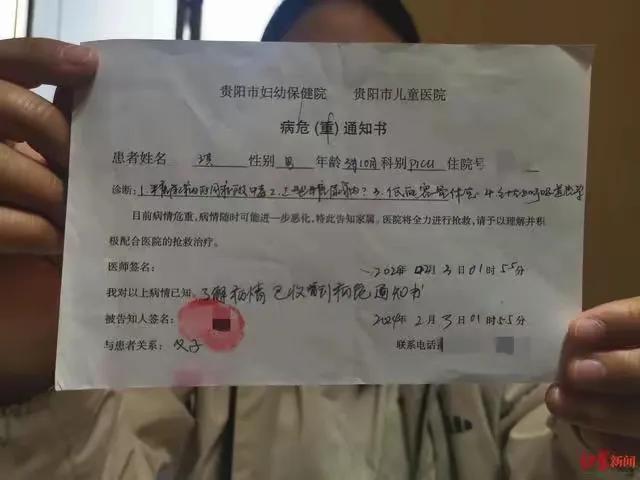 贵阳市妇幼保健院 贵阳市儿童医院
病危(重)通知书
患者姓名 琪 性别 男 年龄 3岁10月 科别 PICU 住院号
诊断: 1.糖尿病酮症酸中毒 2. 1型糖尿病? 3.低血容量休克 4.
目前病情危重,病情随时可能进一步恶化,特此告知家属。医院将全力进行抢救,请予以理解并积
极配合医院的抢救治疗。
医师签名: 2024年 2月 3日 01时55分
我对以上病情已知 了解病情 已收到病危通知书
被告知人签名: 2024年 2月 3 日 01时55分
与患者关系: 父子 联系电话
红星新闻